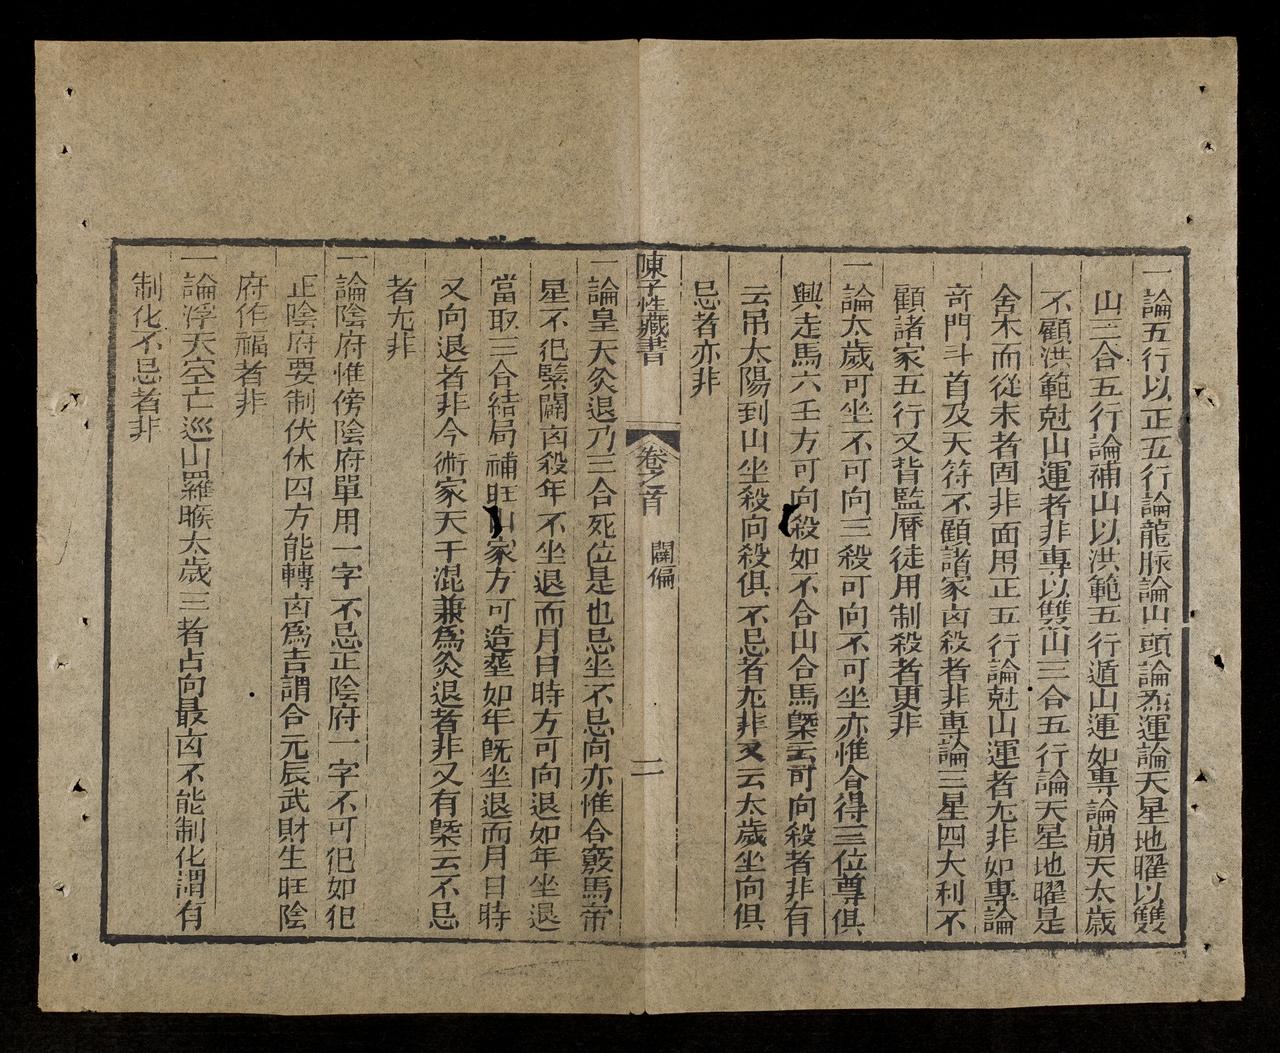 一論五行以正五行論龍脉論山頭論𤇆運論天星地曜以雙
山三合五行論補山以洪範五行遁山運如專論崩天太歲
不顧洪範尅山運者非專以雙山三合五行論天星地曜是
舍木而從末者固非面用正五行論尅山運者尤非如專論
奇門斗首及天符不顧諸家凶殺者非專論三星四大利不
顧諸家五行又背監曆徒用制殺者更非
一論太歲可坐不可向三殺可向不可坐亦惟合得三位尊俱
興走馬六壬方可向殺如不合山合馬槩云可向殺者非有
云吊太陽到山坐殺向殺俱不忌者尤非又云太歲坐向俱
忌者亦非
陳子性藏書 卷之首 闢偏 二
一論皇天灸退乃三合死位是也忌坐不忌向亦惟合竅馬帝
星不犯緊闢凶殺年不坐退而月日時方可向退如年坐退
當取三合結局補旺山家方可造塟如年既坐退而月日時
又向退者非今術家天干混兼爲灸退者非又有槩云不忌
者尤非
一論陰府惟傍陰府單用一字不忌正陰府一字不可犯如犯
正陰府要制伏休囚方能轉凶爲吉謂合元辰武財生旺陰
府作福者非
一論浮天空亡巡山羅睺太歲三者占向最凶不能制化謂有
制化不忌者非